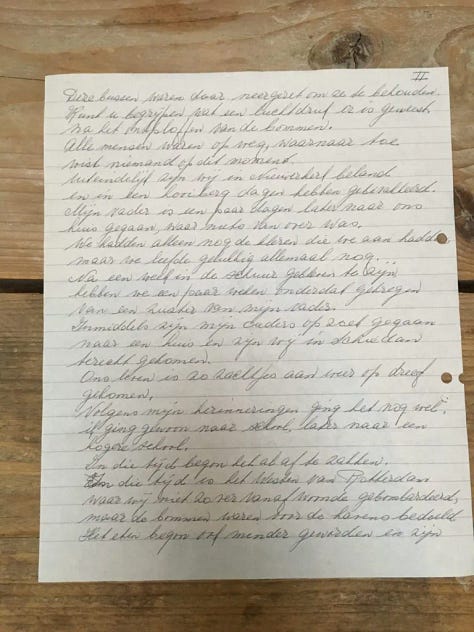 II
Deze bussen waren daar neergezet om ze te behouden.
Kunt u begrijpen wat een luchtdruk er is geweest
na het ontploffen van de bommen.
Alle mensen waren op weg, waarnaar toe
wist niemand op dit moment.
Uiteindelijk zijn wij in Nieuwerkerk beland
en in een hooiberg dagen hebben gebivakkeerd.
Mijn vader is een paar dagen later naar ons
huis gegaan, waar niets van over was.
We hadden alleen nog de kleren die we aan hadden,
maar we leefde gelukkig allemaal nog...
Na een week in de schuur gebleven te zijn
hebben we een paar weken onderdak gekregen
van een zuster van mijn vader.
Inmiddels zijn mijn ouders op zoek gegaan
naar een huis en zijn wij in Schiedam
terecht gekomen.
Ons leven is zo zachtjes aan weer op dreef
gekomen,
Volgens mijn herinneringen ging het nog wel,
ik ging gewoon naar school, later naar een
hogere school.
In die tijd begon het al af te zakken.
In die tijd is het Westen van Rotterdam
waar wij niet zo ver vanaf woonde gebombardeerd,
maar de bommen waren voor de havens bedoeld.
Het eten begon ook minder geworden en zijn